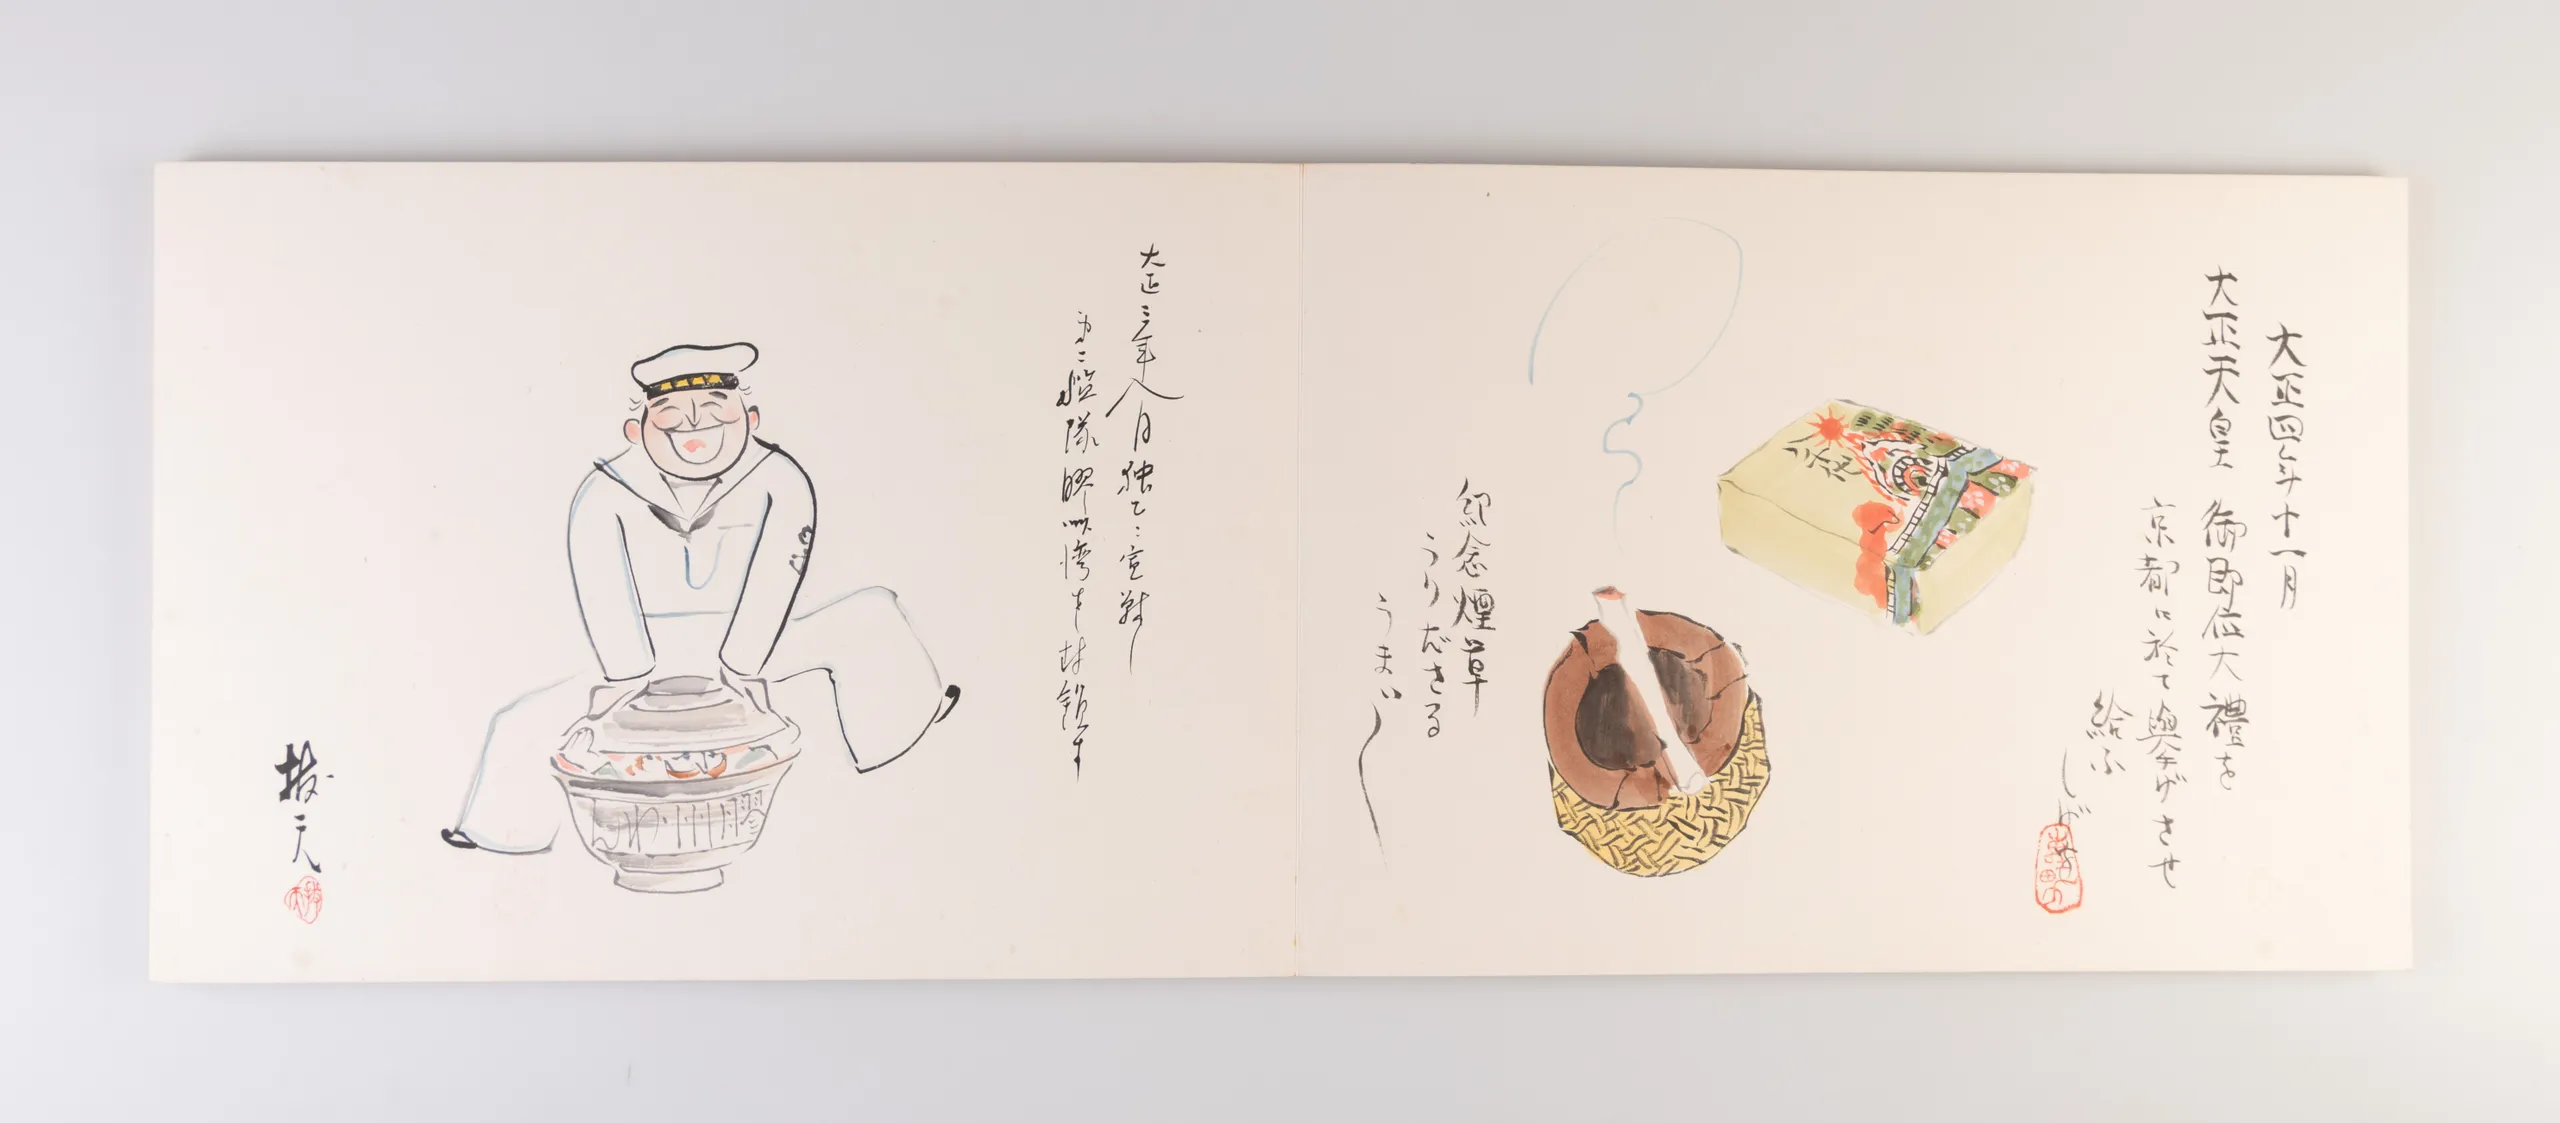 大正四年十一月
大正天皇 御即位大禮を
京都に於て擧げさせ
給ふ
しば
紀念煙草
うりださる
うまい
大正三年八月独乙に宣戦し
第二艦隊膠州湾を封鎖す
膠州わん